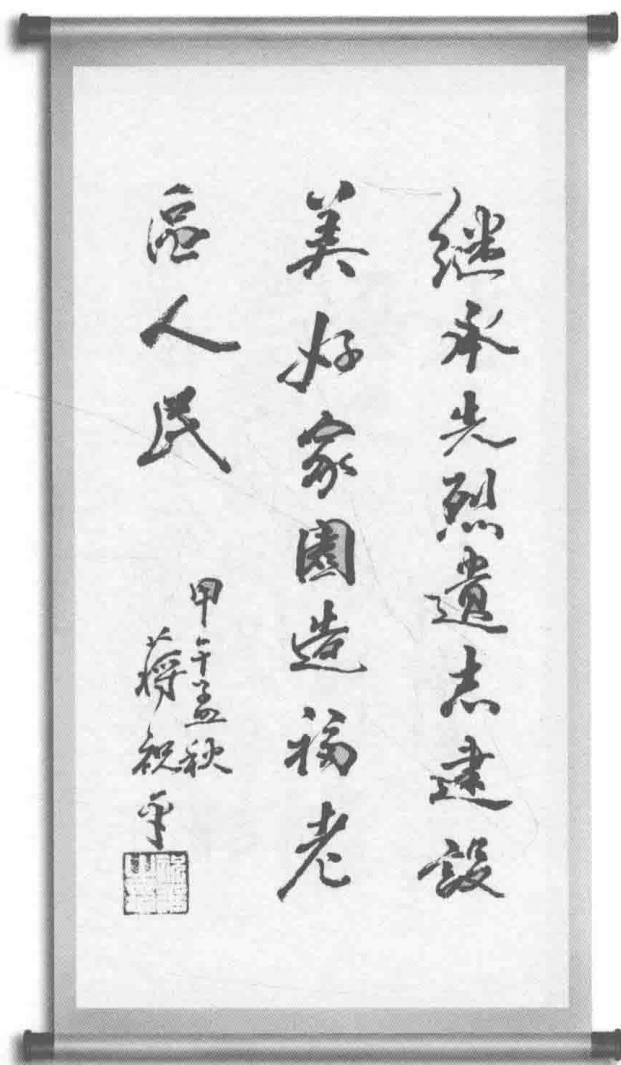 继承先烈遺志建設
美好家園造福老
區人民
甲午孟秋
蔣祝平